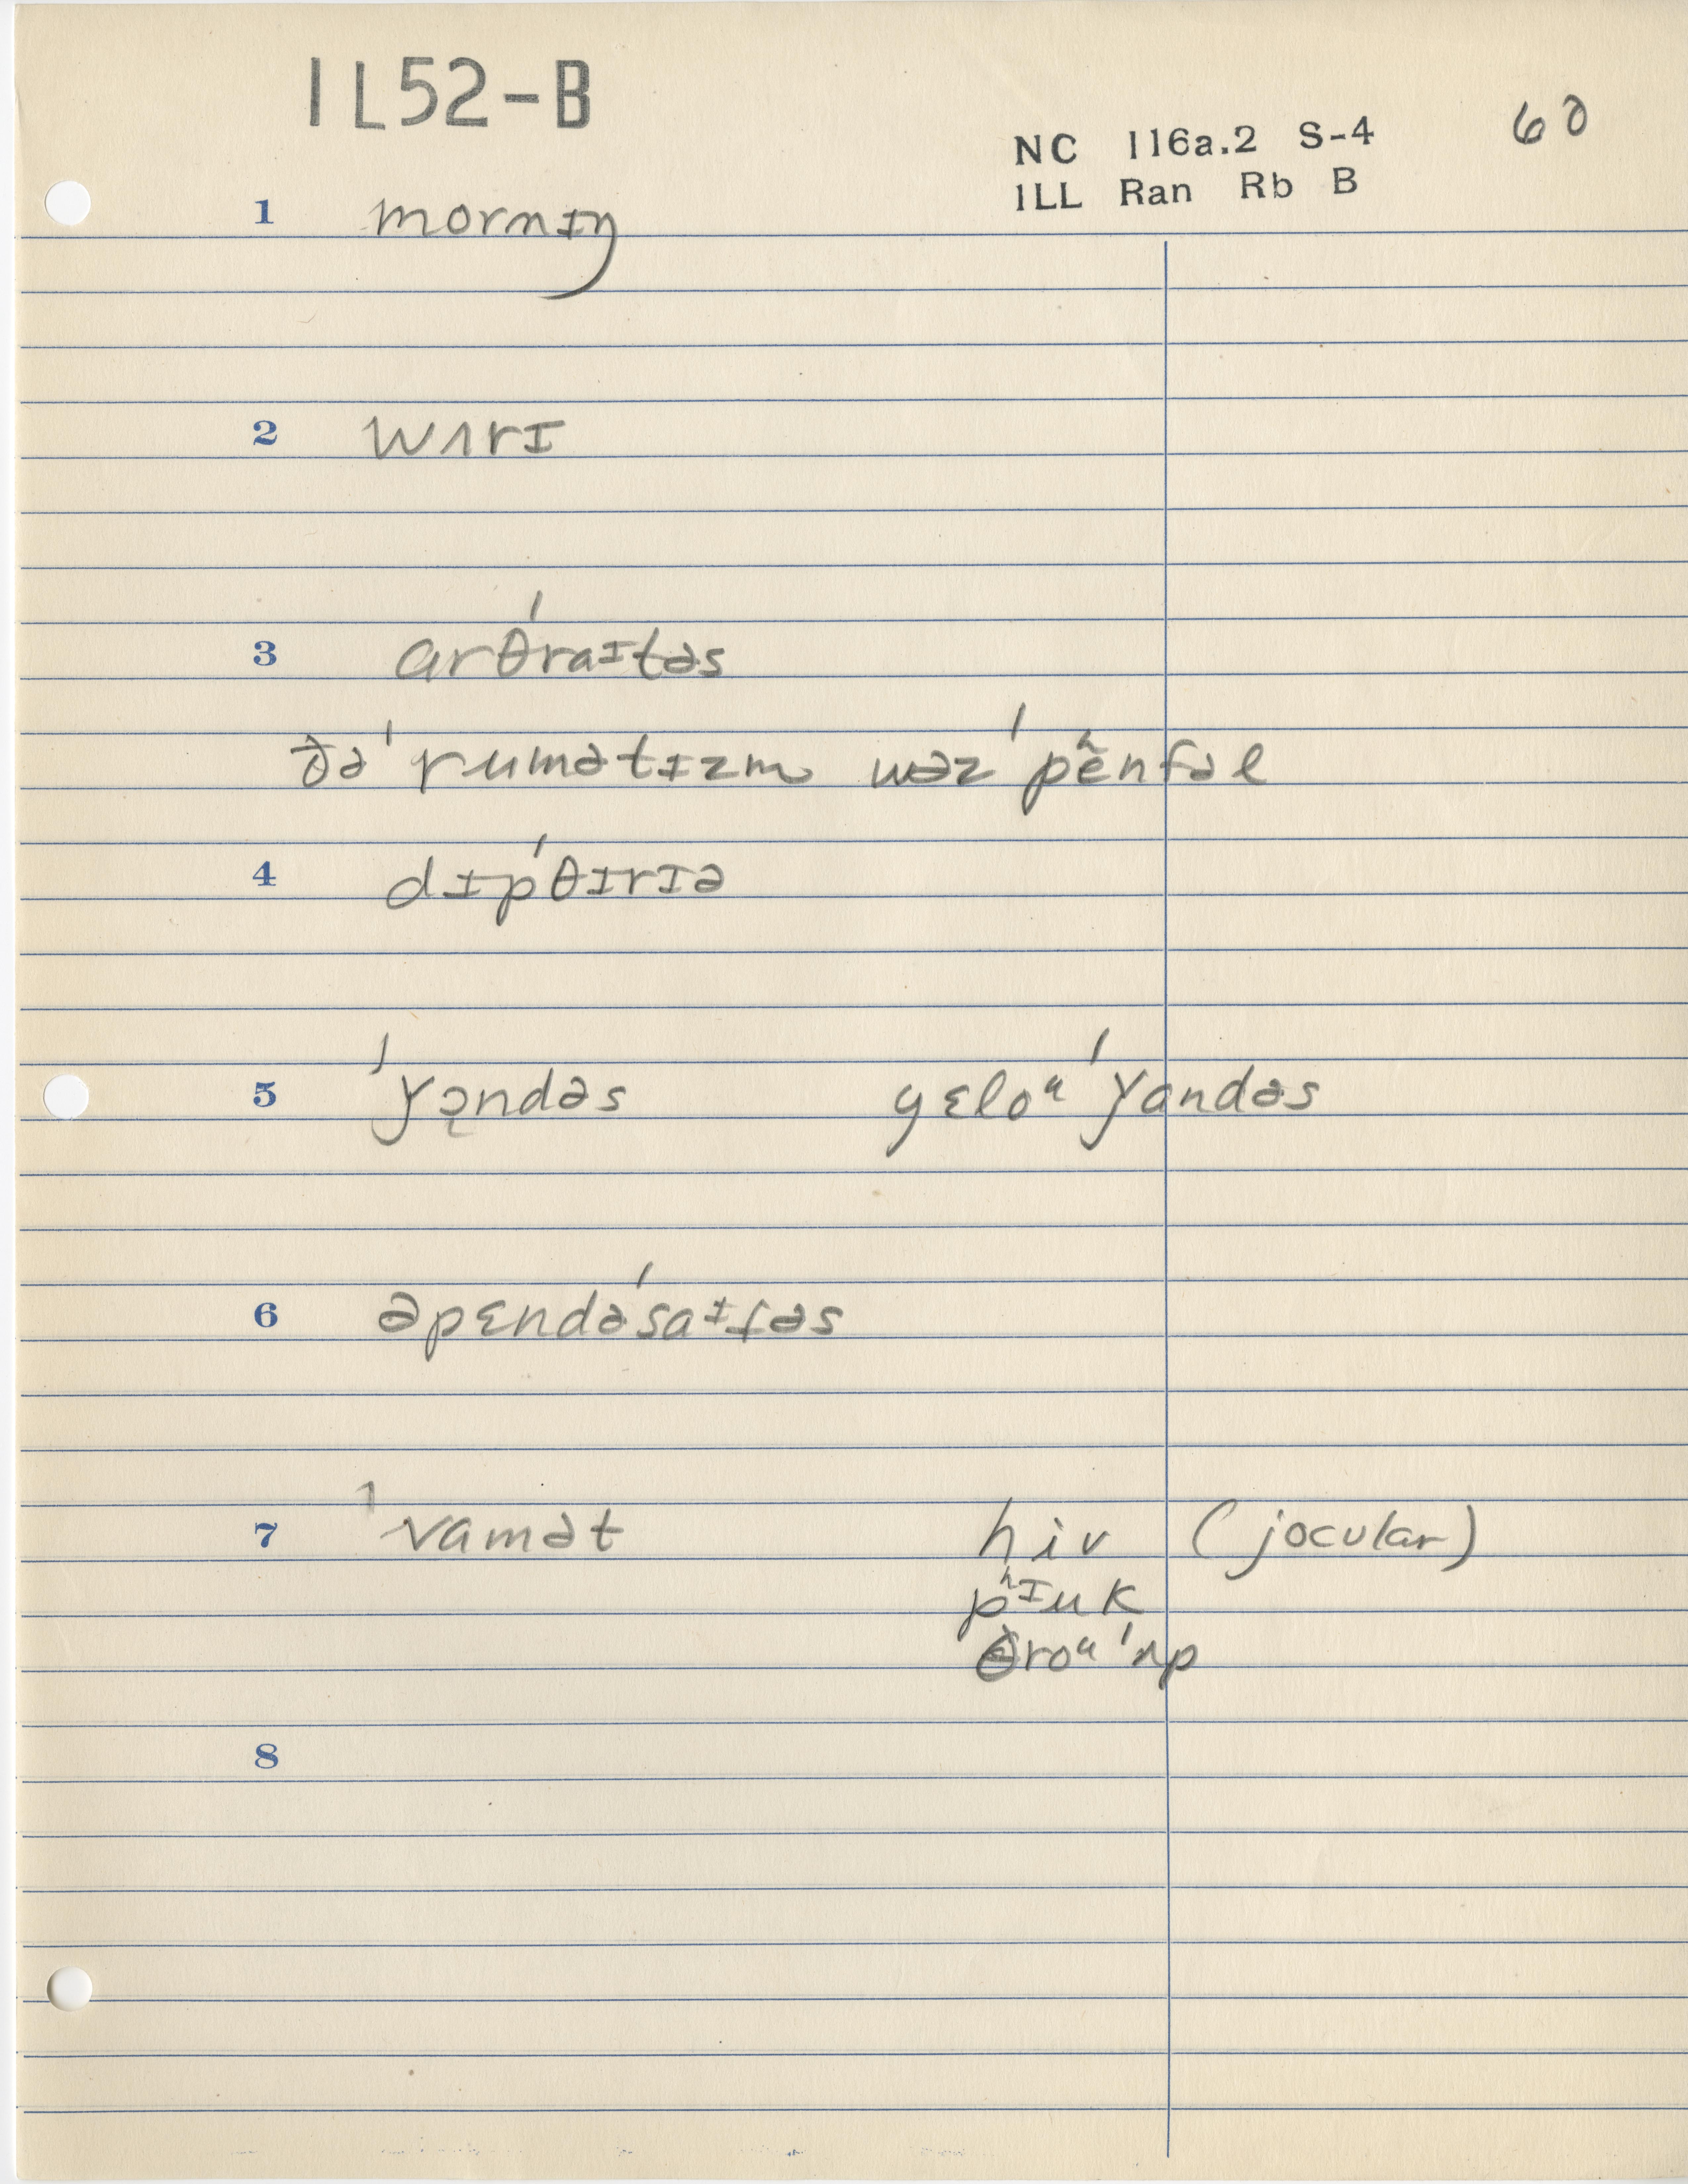 IL52-B
NC 116a.2 S-4 60
ILL Ran Rb B
1 mornɪŋ
2 wʌrɪ
3 arˈθraɪtəs
ðə ˈrumətɪzm wəz ˈpʰẽnfəl
4 dɪpˈθɪrɪə
5 ˈǰɔndəs yɛloᵘ ˈǰandəs
6 əpɛndəˈsaɪtəs
7 ˈvamət hiv (jocular)
pʰɪuk
θroᵘ ˈʌp
8